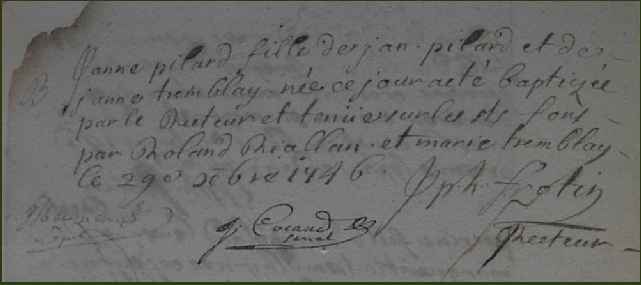 B
janne pilard fille de jan pilard et de
janne tremblay née ce jour a eté baptizée
par le Recteur et tenüe sur les sts fons
par Roland Riallan et marie tremblay
le 29e xbre 1746
Jph. Frotin
J. Cocaud
Recteur